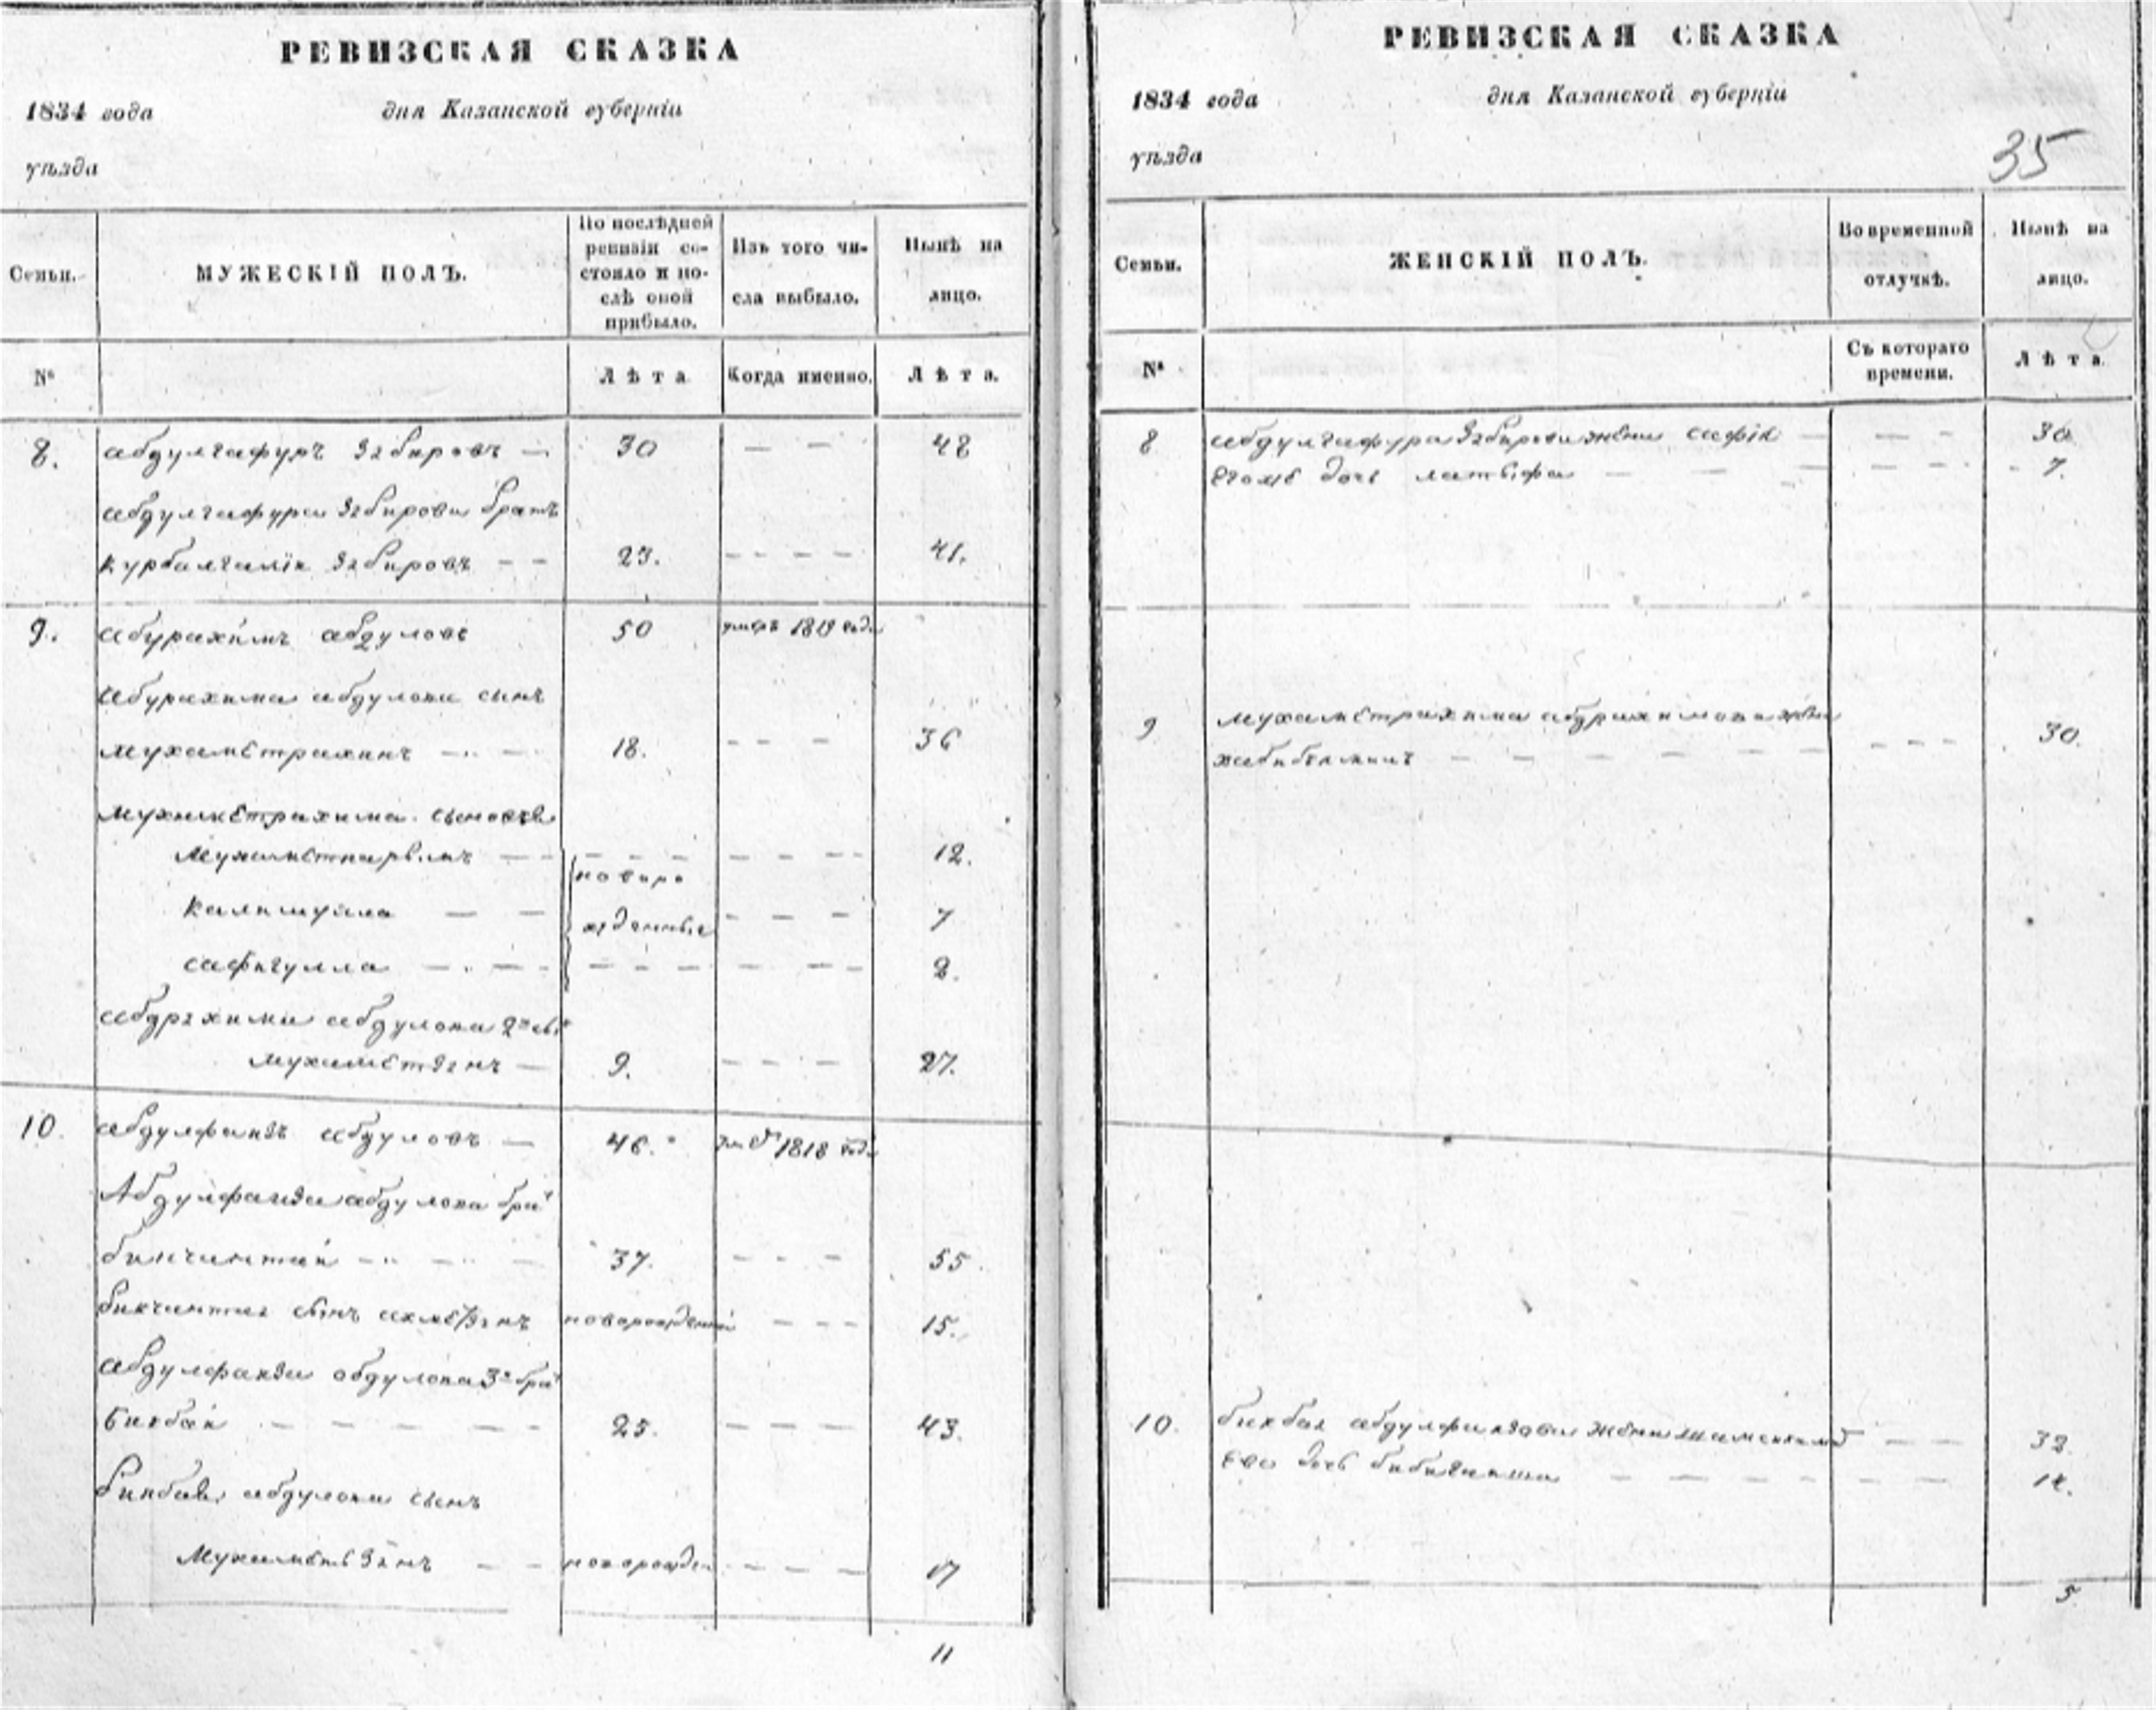 РЕВИЗСКАЯ СКАЗКА
1834 года дня Казанской губерніи
уѣзда
Семьи.
МУЖЕСКІЙ ПОЛЪ.
По послѣдней ревизіи состояло и послѣ оной прибыло.
Изъ того числа выбыло.
Нынѣ на лицо.
№
Лѣта
Когда именно.
Лѣта.
8. абдулгафуръ Зябировъ 30 — — 48
абдулгафура Зябирова братъ
курбалгалiи Зябировъ — — 23. — — — — 41.
9. абурахимъ абдуловъ 50 умеръ 1819 года
абурахима абдулова сынъ
мухаметрахимъ 18. — — — 36
мухаметрахима сыновья
12.
новоро
жденные 7
сафигулла 2.
абдрахима абдулова 2й
мухаметзянъ — 9. — — — — 27.
10. абдулфаизъ абдуловъ — 46. 1818 года
Абдулфаиза абдулова бра
бикчинтай 37. — — — 55.
бикчинтая сынъ ахметзянъ новорожденной — — — 15.
абдулфаиза абдулова 3й бра
Бикбай — — — — — 25. — — — 43.
Бикбая абдулова сынъ
Мухаметьзянъ — — новорожден — — — 17
11
РЕВИЗСКАЯ СКАЗКА
1834 года дня Казанской губерніи
уѣзда
35
Семьи.
ЖЕНСКІЙ ПОЛЪ.
Во временной отлучкѣ.
Нынѣ на лицо.
№
Съ котораго времени.
Лѣта.
8 абдулгафура Зябирова жена сафiя — — — 30
дочь латифа — — — — 7.
9 мухаметрахима абдрахимова жена
— — — 30.
10. бикбая абдулфаизова жена — — 32.
Ево дочь — — — —
5